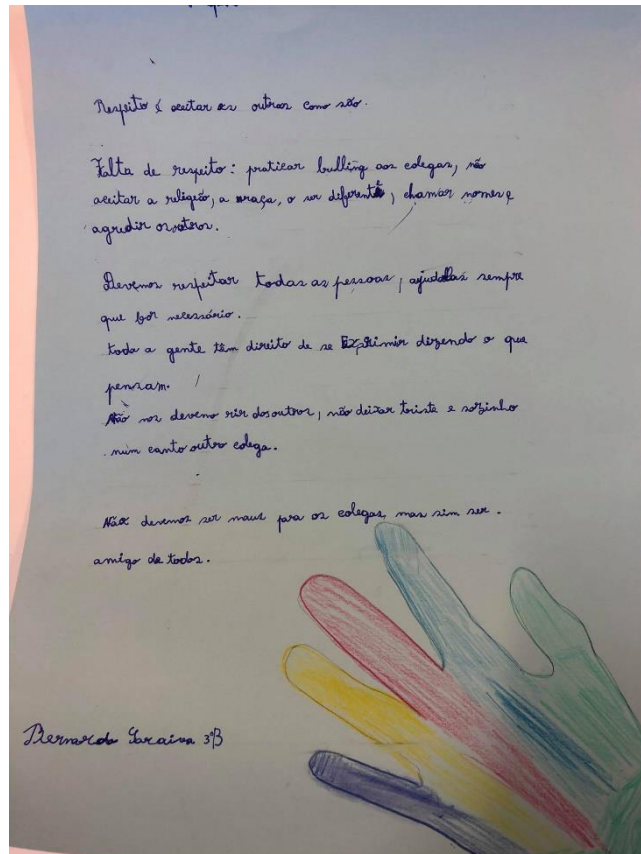 Respeito é aceitar os outros como são.
Falta de respeito: praticar bulling aos colegas, não
aceitar a religião, a raça, o ser diferente, chamar nomes e
agredir os outros.
Devemos respeitar todas as pessoas, ajudalas sempre
que for necessário.
toda a gente têm direito de se Exprimir dizendo o que
pensam.
Não nos deveno rir dos outros, não deixar triste e sozinho
num canto outro colega.
Não devemos ser maus para os colegas, mas sim ser.
amigo de todos.
Bernardo Saraiva 3ºB